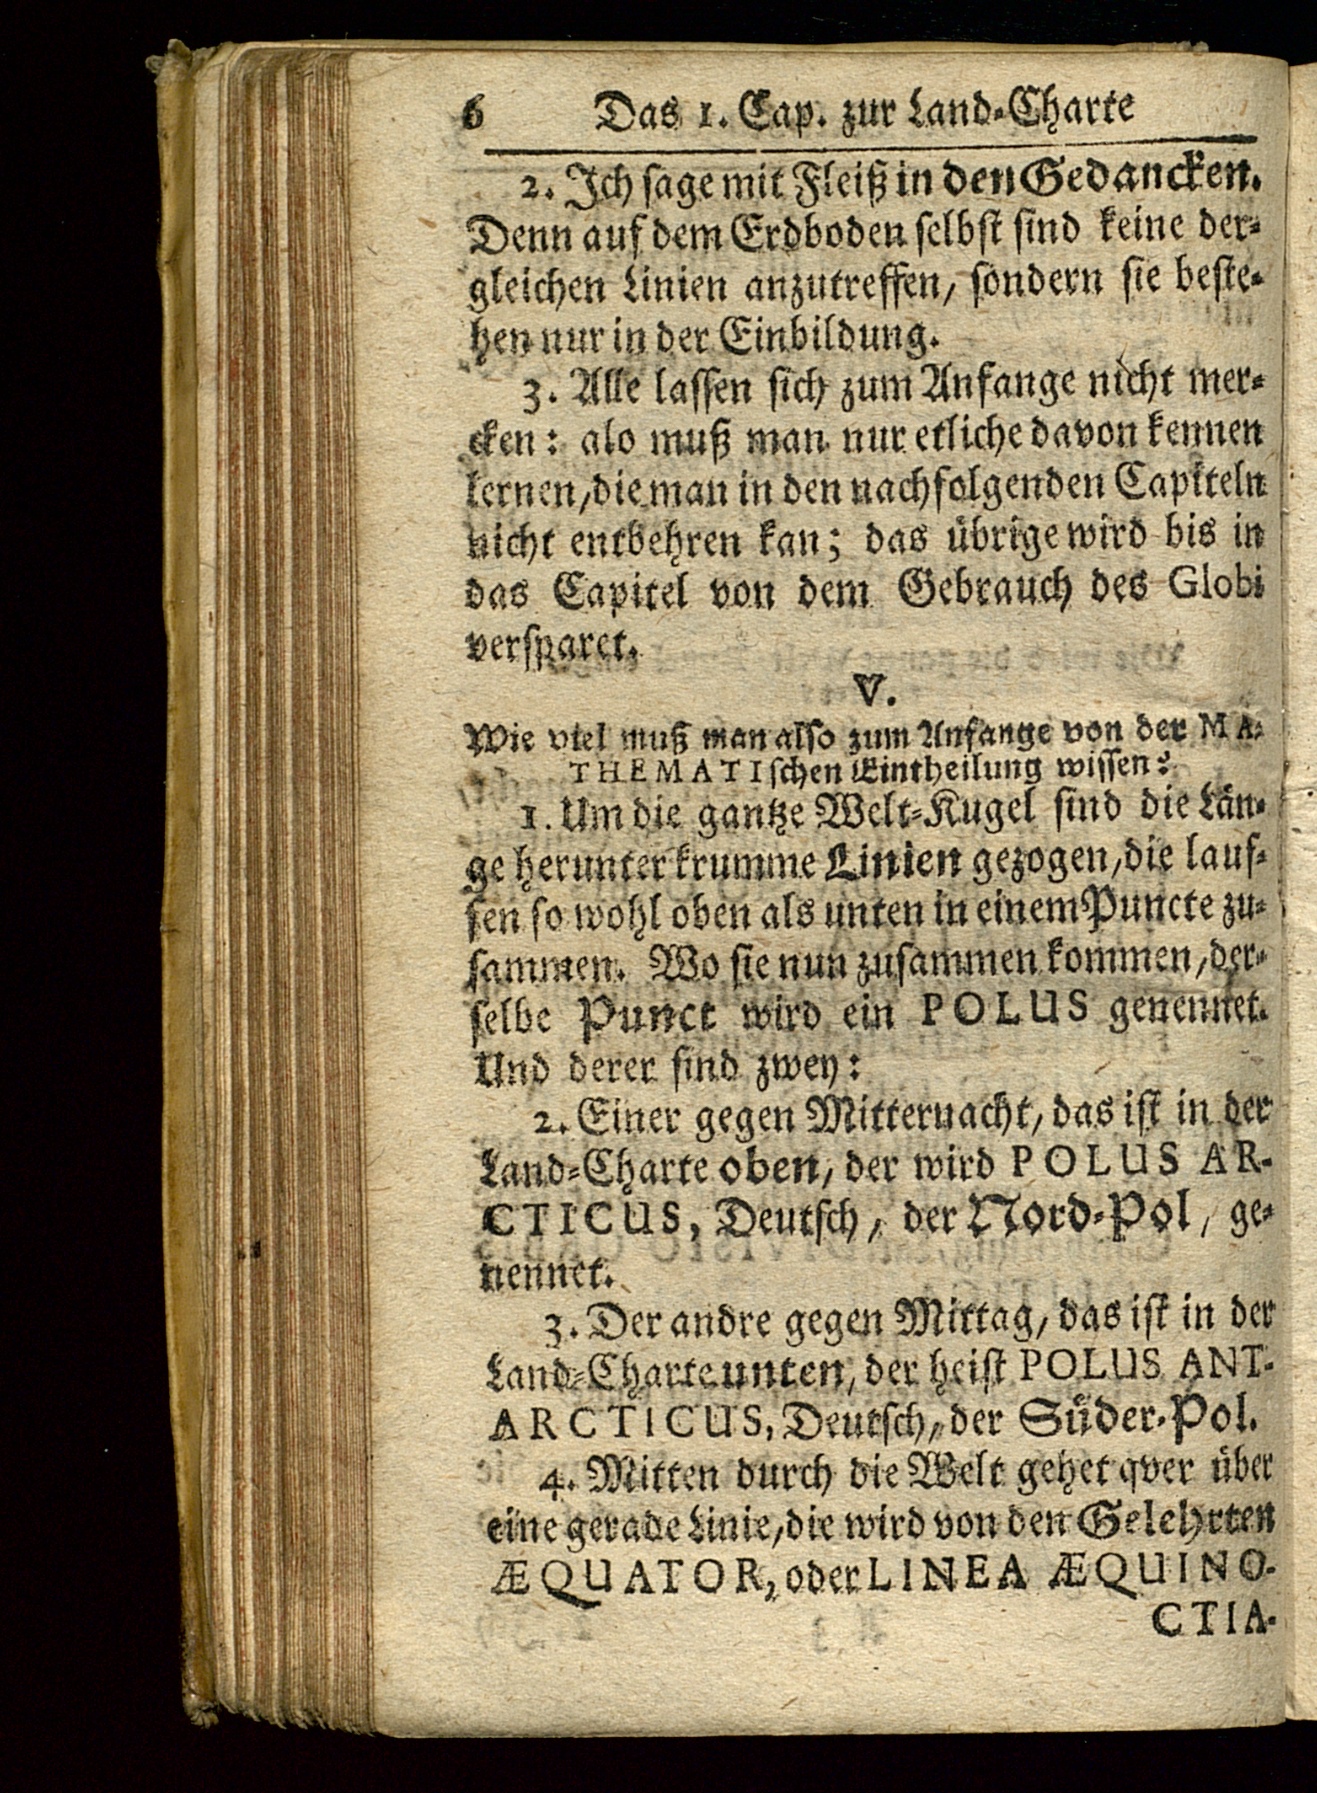 6 Das 1. Cap. zur Land-Charte
2. Ich sage mit Fleiß in den Gedancken.
Denn auf dem Erdboden selbst sind keine der-
gleichen Linien anzutreffen, sondern sie beste-
hen nur in der Einbildung.
3. Alle lassen sich zum Anfange nicht mer-
cken: alo muß man nur etliche davon kennen
lernen, die man in den nachfolgenden Capiteln
nicht entbehren kan; das übrige wird bis in
das Capitel von dem Gebrauch des Globi
versparet.
V.
Wie viel muß man also zum Anfange von der MA-
THEMATIschen Eintheilung wissen?
1. Um die gantze Welt-Kugel sind die Län-
ge herunter krumme Linien gezogen, die lauf-
fen so wohl oben als unten in einem Puncte zu-
sammen. Wo sie nun zusammen kommen, der-
selbe Punct wird ein POLUS genennet.
Und derer sind zwey:
2. Einer gegen Mitternacht, das ist in der
Land-Charte oben, der wird POLUS AR-
CTICUS, Deutsch, der Nord-Pol, ge-
nennet.
3. Der andre gegen Mittag, das ist in der
Land-Charte unten, der heist POLUS ANT-
ARCTICUS, Deutsch, der Süder-Pol.
4. Mitten durch die Welt gehet qver über
eine gerade Linie, die wird von den Gelehrten
ÆQUATOR, oder LINEA ÆQUINO-
CTIA-